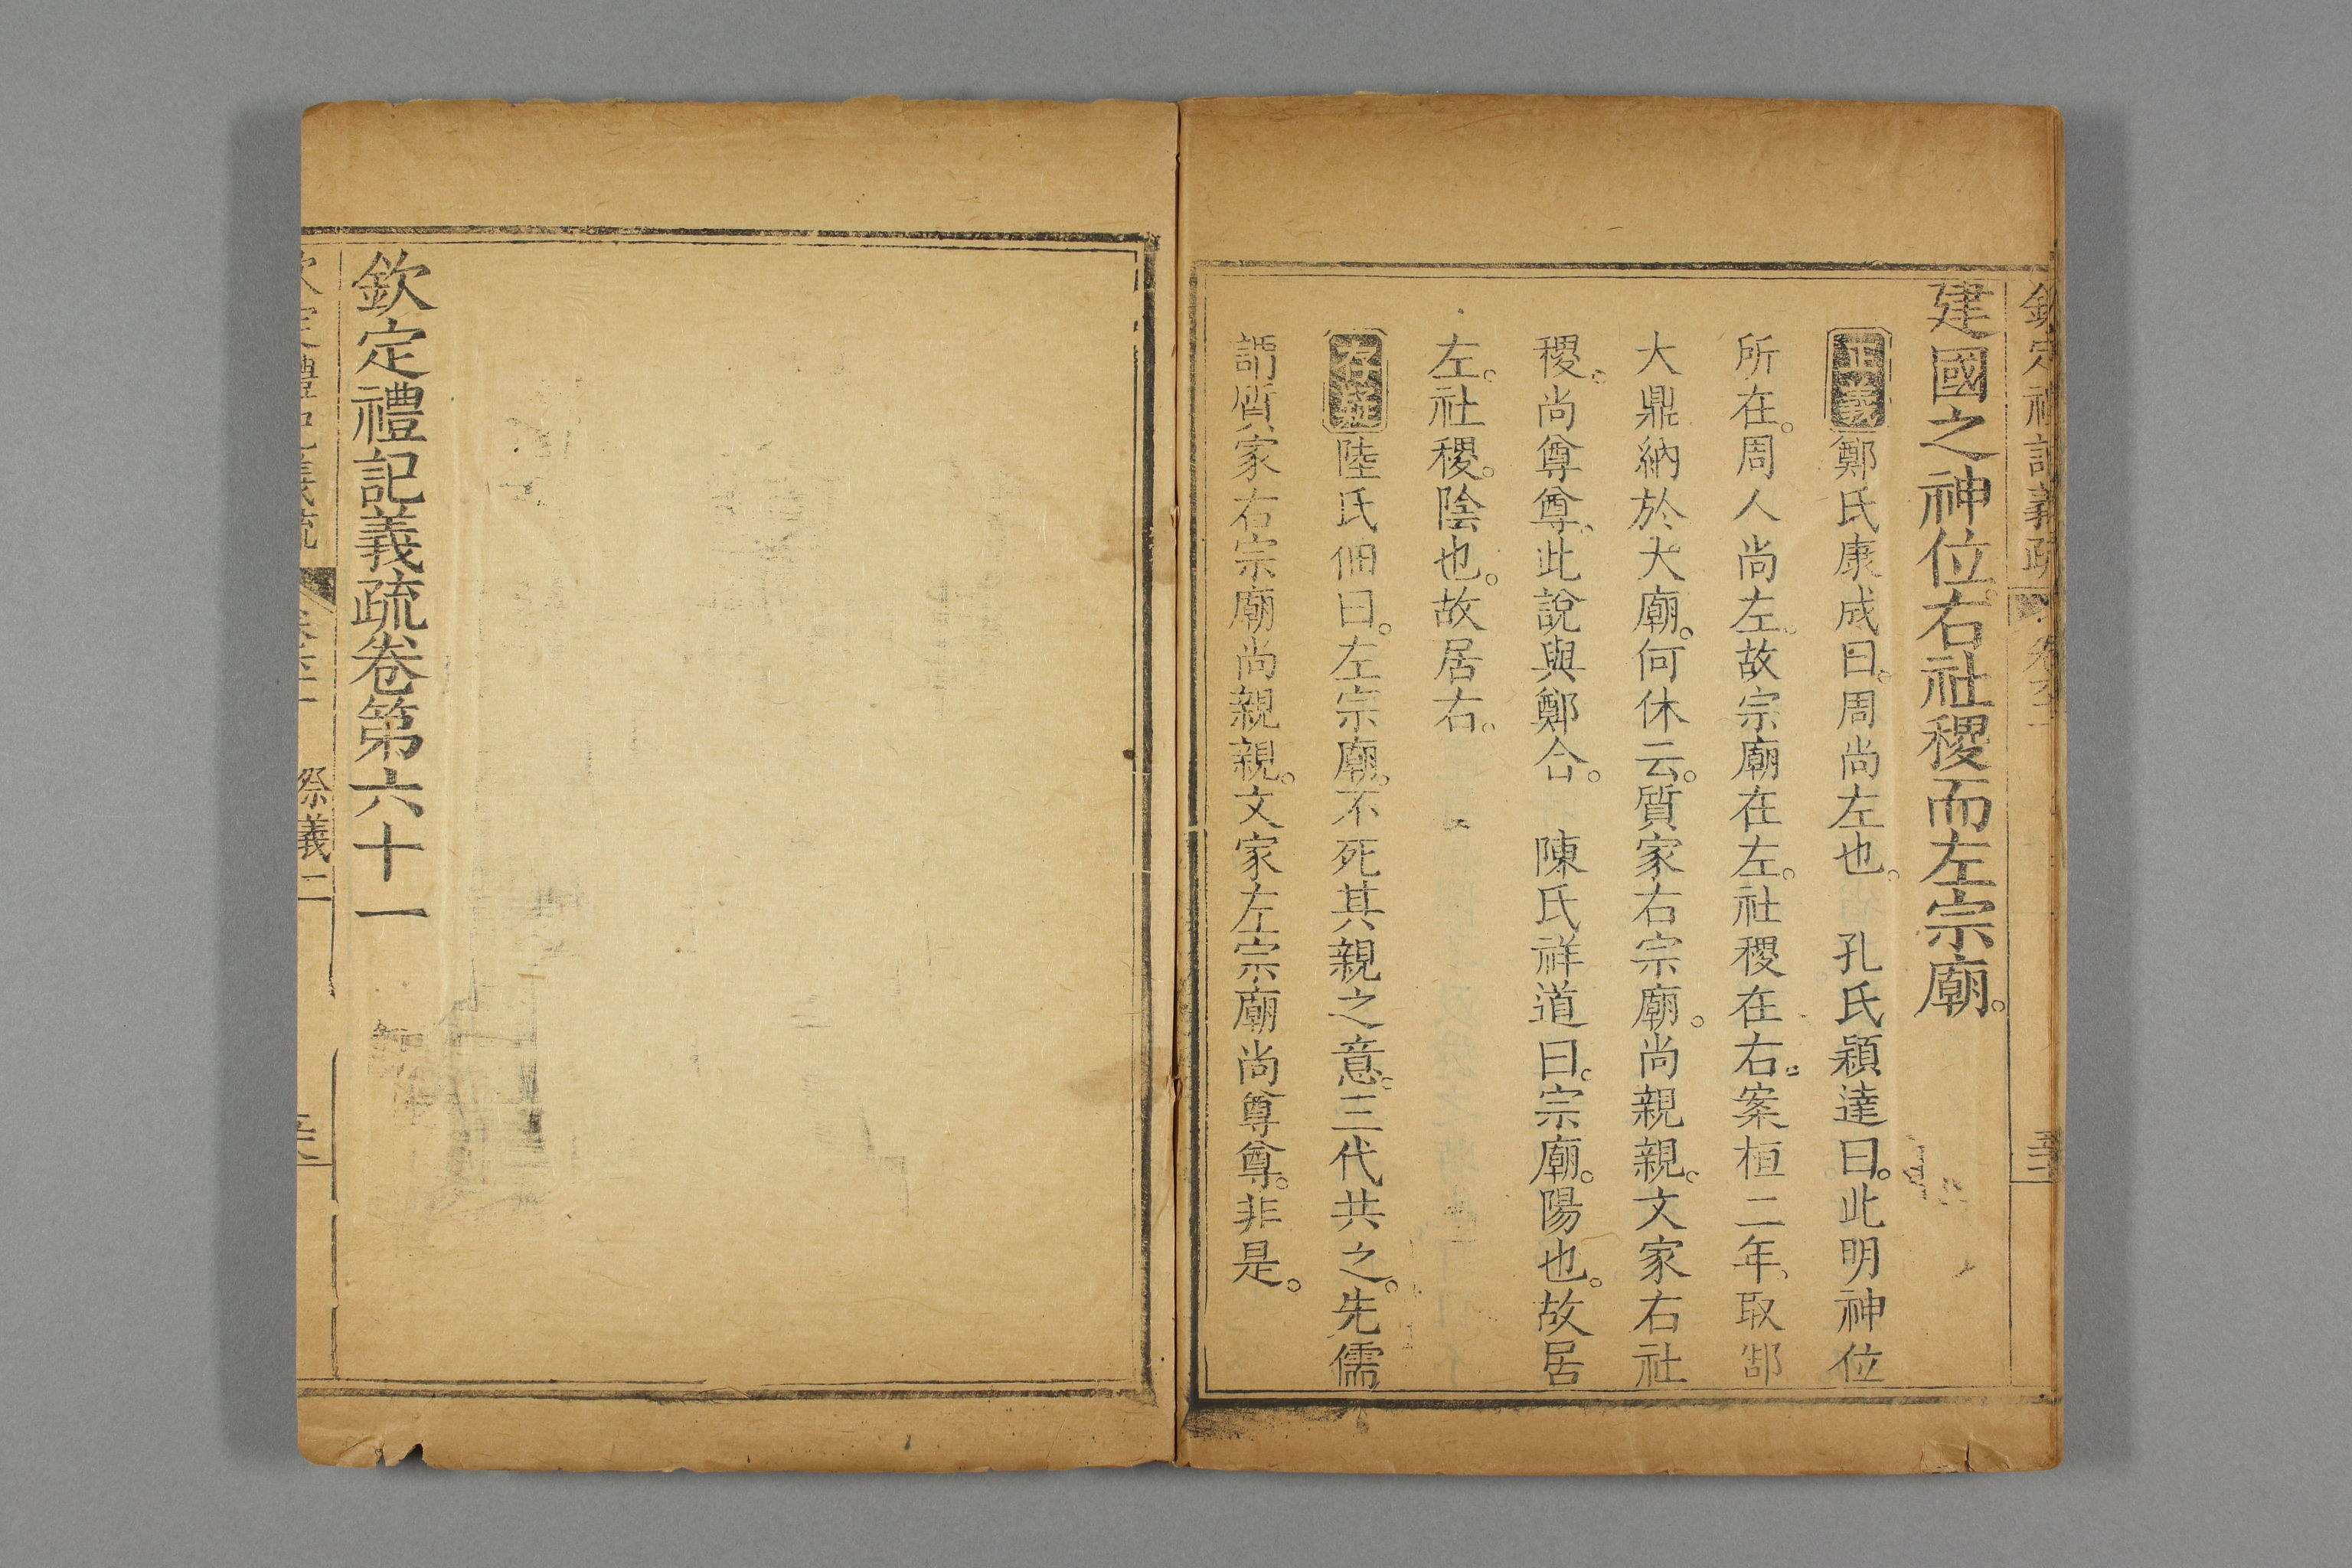 建國之神位。右社稷而左宗廟。
正義鄭氏康成曰。周尚左也。 孔氏穎達曰。此明神位
所在。周人尚左。故宗廟在左。社稷在右。案桓二年。取郜
大鼎納於大廟。何休云。質家右宗廟。尚親親。文家右社
稷。尚尊尊。此說與鄭合。 陳氏祥道曰。宗廟。陽也。故居
左。社稷。陰也。故居右。
存疑陸氏佃曰。左宗廟。不死其親之意。三代共之。先儒
謂質家右宗廟尚親親。文家左宗廟尚尊尊。非是。
欽定禮記義疏卷第六十一
祭義二